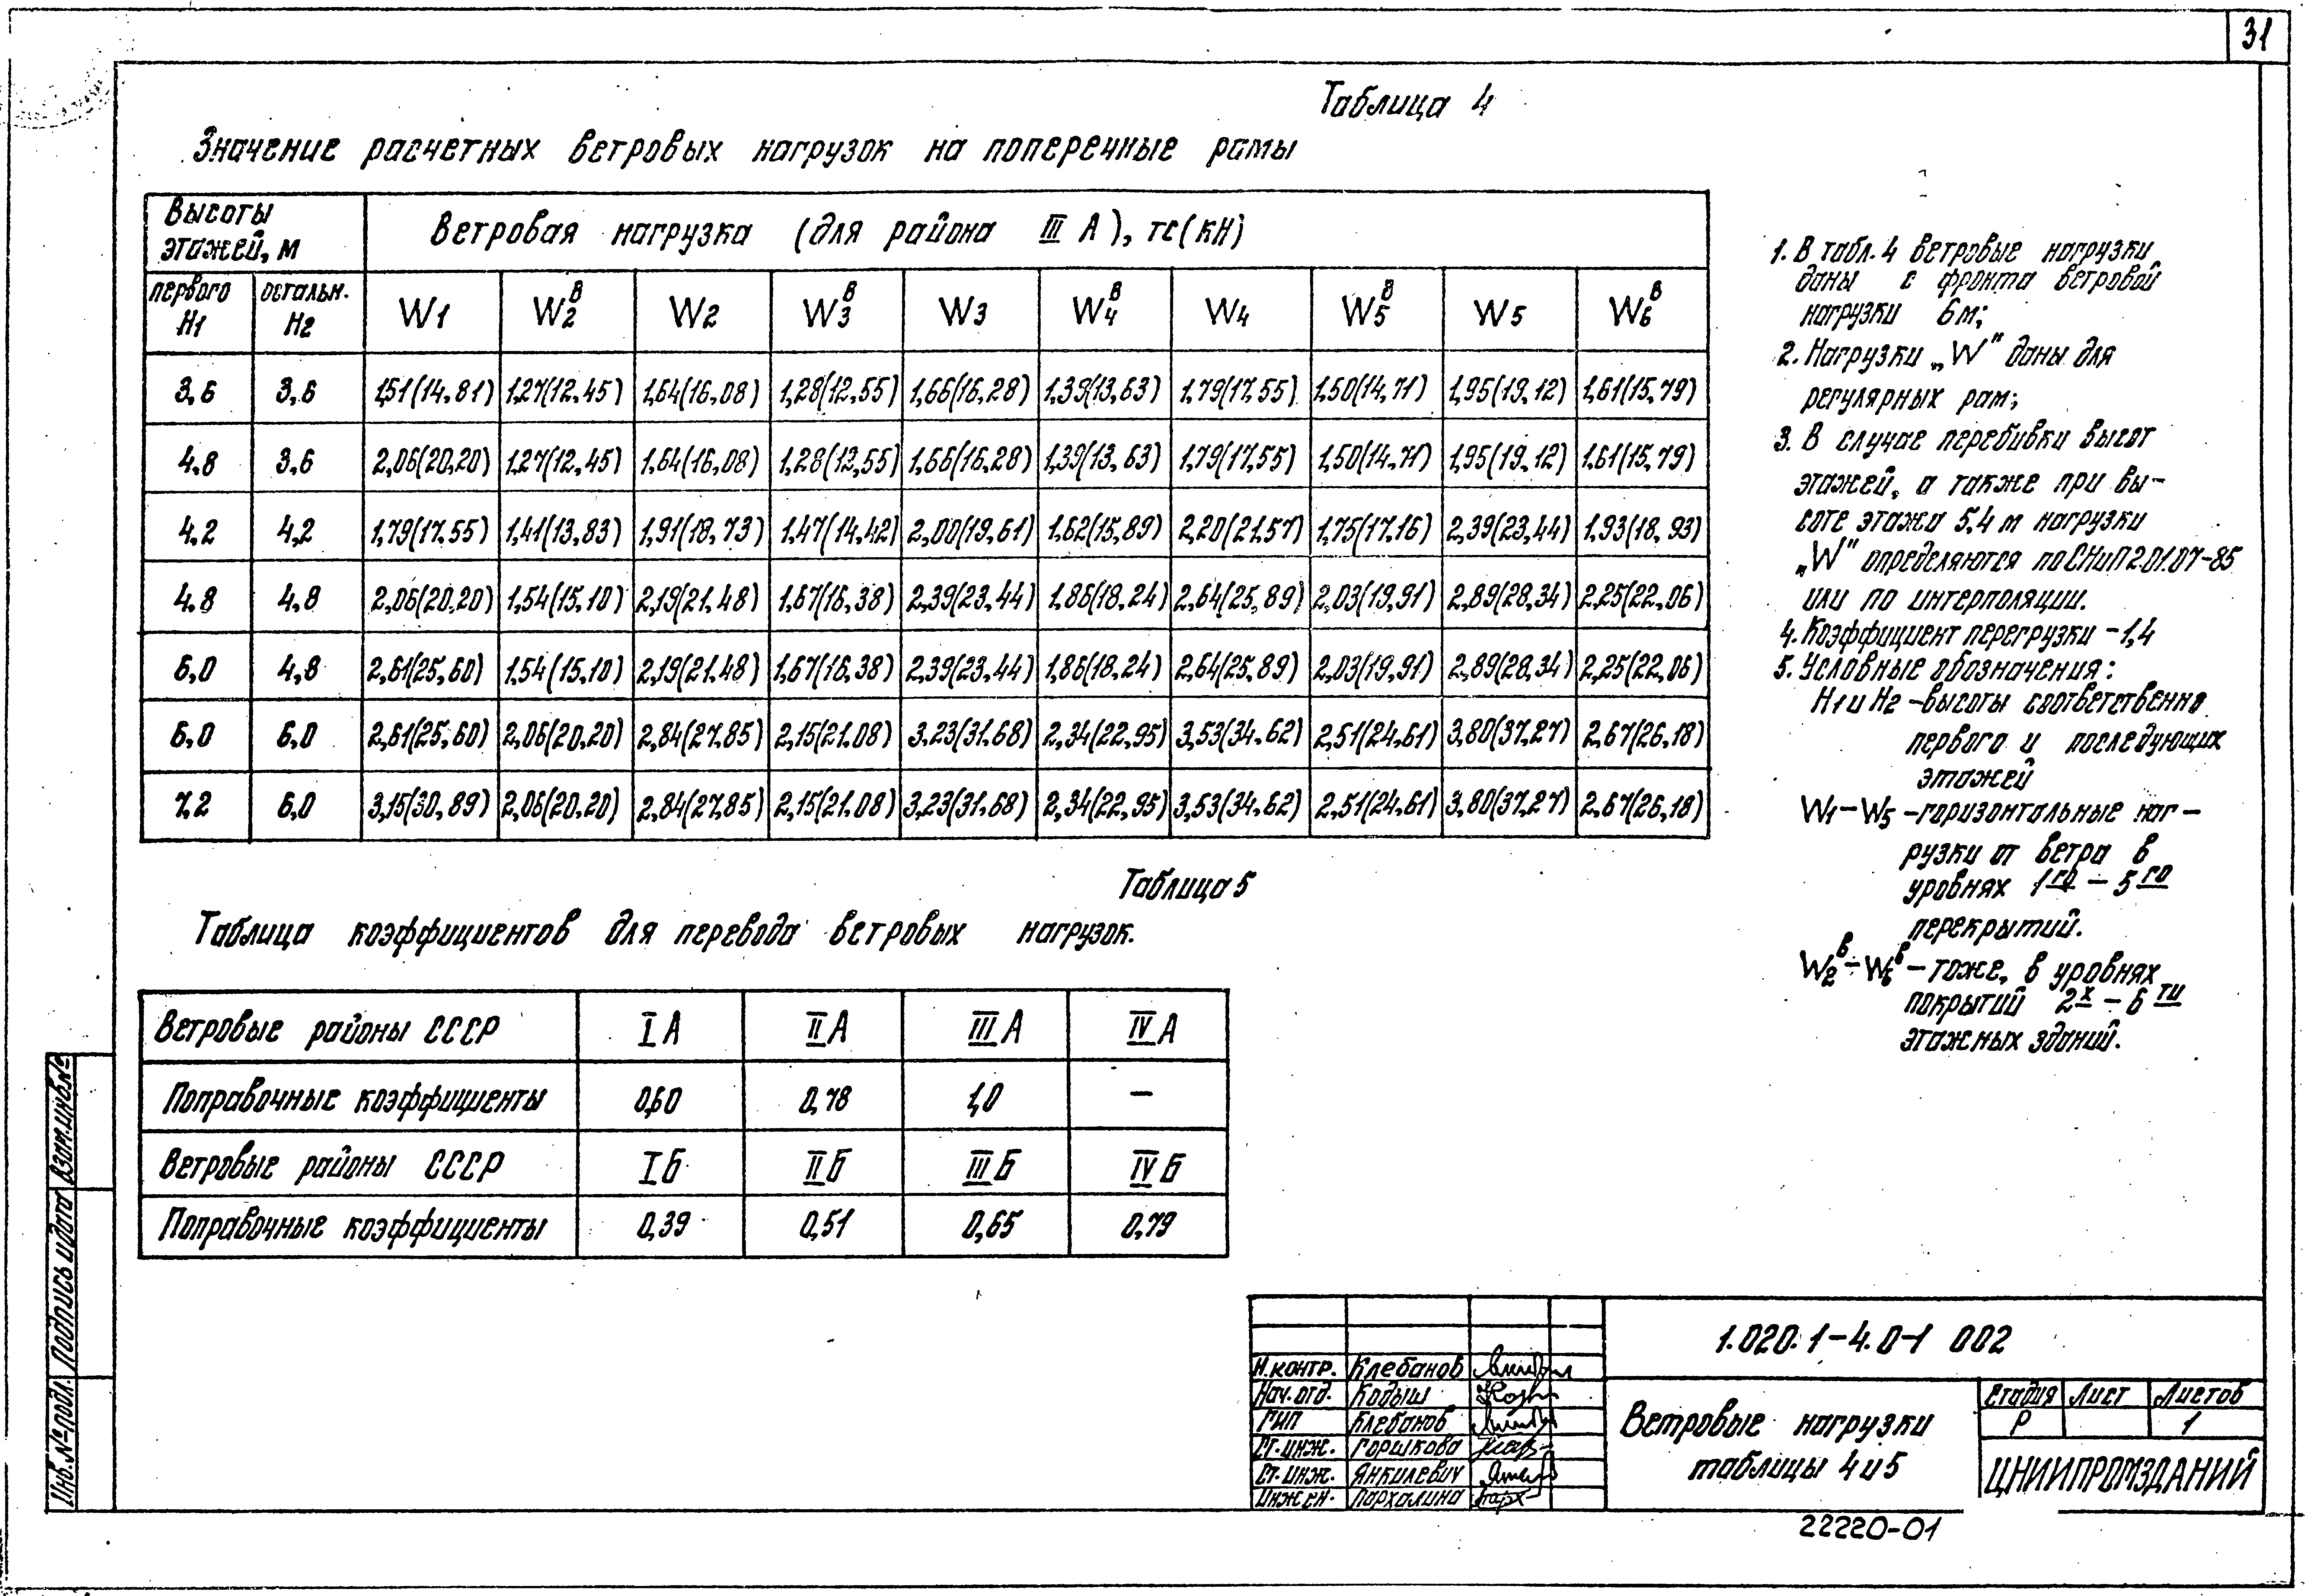 31
Таблица 4
Значение расчетных ветровых нагрузок на поперечные рамы
Высоты этажей, м | Ветровая нагрузка (для района III А), тс(кН)
первого H1 | остальн. H2 | W1 | W2в | W2 | W3в | W3 | W4в | W4 | W5в | W5 | W6в
3,6 | 3,6 | 1,51(14,81) | 1,27(12,45) | 1,64(16,08) | 1,28(12,55) | 1,66(16,28) | 1,39(13,63) | 1,79(17,55) | 1,50(14,71) | 1,95(19,12) | 1,61(15,79)
4,8 | 3,6 | 2,06(20,20) | 1,27(12,45) | 1,64(16,08) | 1,28(12,55) | 1,66(16,28) | 1,39(13,63) | 1,79(17,55) | 1,50(14,71) | 1,95(19,12) | 1,61(15,79)
4,2 | 4,2 | 1,79(17,55) | 1,41(13,83) | 1,91(18,73) | 1,47(14,42) | 2,00(19,61) | 1,62(15,89) | 2,20(21,57) | 1,75(17,16) | 2,39(23,44) | 1,93(18,93)
4,8 | 4,8 | 2,06(20,20) | 1,54(15,10) | 2,19(21,48) | 1,67(16,38) | 2,39(23,44) | 1,86(18,24) | 2,64(25,89) | 2,03(19,91) | 2,89(28,34) | 2,25(22,06)
6,0 | 4,8 | 2,61(25,60) | 1,54(15,10) | 2,19(21,48) | 1,67(16,38) | 2,39(23,44) | 1,86(18,24) | 2,64(25,89) | 2,03(19,91) | 2,89(28,34) | 2,25(22,06)
6,0 | 6,0 | 2,61(25,60) | 2,06(20,20) | 2,84(27,85) | 2,15(21,08) | 3,23(31,68) | 2,34(22,95) | 3,53(34,62) | 2,51(24,61) | 3,80(37,27) | 2,67(26,18)
7,2 | 6,0 | 3,15(30,89) | 2,06(20,20) | 2,84(27,85) | 2,15(21,08) | 3,23(31,68) | 2,34(22,95) | 3,53(34,62) | 2,51(24,61) | 3,80(37,27) | 2,67(26,18)
1. В табл. 4 ветровые нагрузки
даны с фронта ветровой
нагрузки 6м;
2. Нагрузки „W" даны для
регулярных рам;
3. В случае перебивки высот
этажей, а также при вы-
соте этажа 5,4 м нагрузки
„W" определяются по СНиП 2.01.07-85
или по интерполяции.
4. Коэффициент перегрузки - 1,4
5. Условные обозначения:
H1 и H2 - высоты соответственно
первого и последующих
этажей
W1 - W5 - горизонтальные наг-
рузки от ветра в
уровнях 1го - 5го
перекрытий.
W2в - W6в - тоже, в уровнях
покрытий 2х - 6ти
этажных зданий.
Таблица 5
Таблица коэффициентов для перевода ветровых нагрузок.
Ветровые районы СССР | I А | II А | III А | IV А
Поправочные коэффициенты | 0,60 | 0,78 | 1,0 | —
Ветровые районы СССР | I Б | II Б | III Б | IV Б
Поправочные коэффициенты | 0,39 | 0,51 | 0,65 | 0,79
Инв.№ подл. Подпись и дата Взам.инв.№
Н.контр. Клебанов
Нач.отд. Кодыш
ГИП Клебанов
Ст.инж. Горшкова
Ст.инж. Янкилевич
Инжен. Пархалина
1.020.1-4.0-1 002
Ветровые нагрузки
таблицы 4 и 5
Стадия Лист Листов
Р 1
ЦНИИПРОМЗДАНИЙ
22220-01